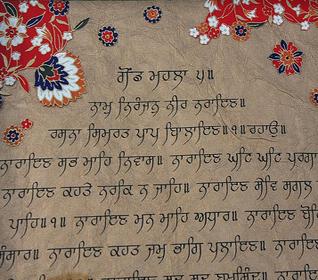 ਗੋਂਡ ਮਹਲਾ ੫॥
ਨਾਮੁ ਨਿਰੰਜਨੁ ਨੀਰਿ ਨਰਾਇਣ॥
ਰਸਨਾ ਸਿਮਰਤ ਪਾਪ ਬਿਲਾਇਣ॥੧॥ਰਹਾਉ॥
ਨਾਰਾਇਣ ਸਭ ਮਾਹਿ ਨਿਵਾਸ॥ ਨਾਰਾਇਣ ਘਟਿ ਘਟਿ ਪਰਗਾ
ਨਾਰਾਇਣ ਕਹਤੇ ਨਰਕਿ ਨ ਜਾਹਿ॥ ਨਾਰਾਇਣ ਸੇਵਿ ਸਗਲ
ਪਾਹਿ॥੧॥ ਨਾਰਾਇਣ ਮਨ ਮਾਹਿ ਅਧਾਰ॥ ਨਾਰਾਇਣ ਬੋਹਿ
ਸੰਸਾਰ॥ ਨਾਰਾਇਣ ਕਹਤ ਜਮੁ ਭਾਗਿ ਪਲਾਇਣ॥ ਨਾਰਾਇਣ